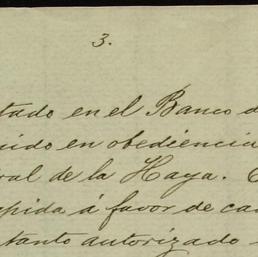 3.
tado en el Banco d
uido en obediencia
ral de la Haya.
pida á favor de ca
tanto autorizado